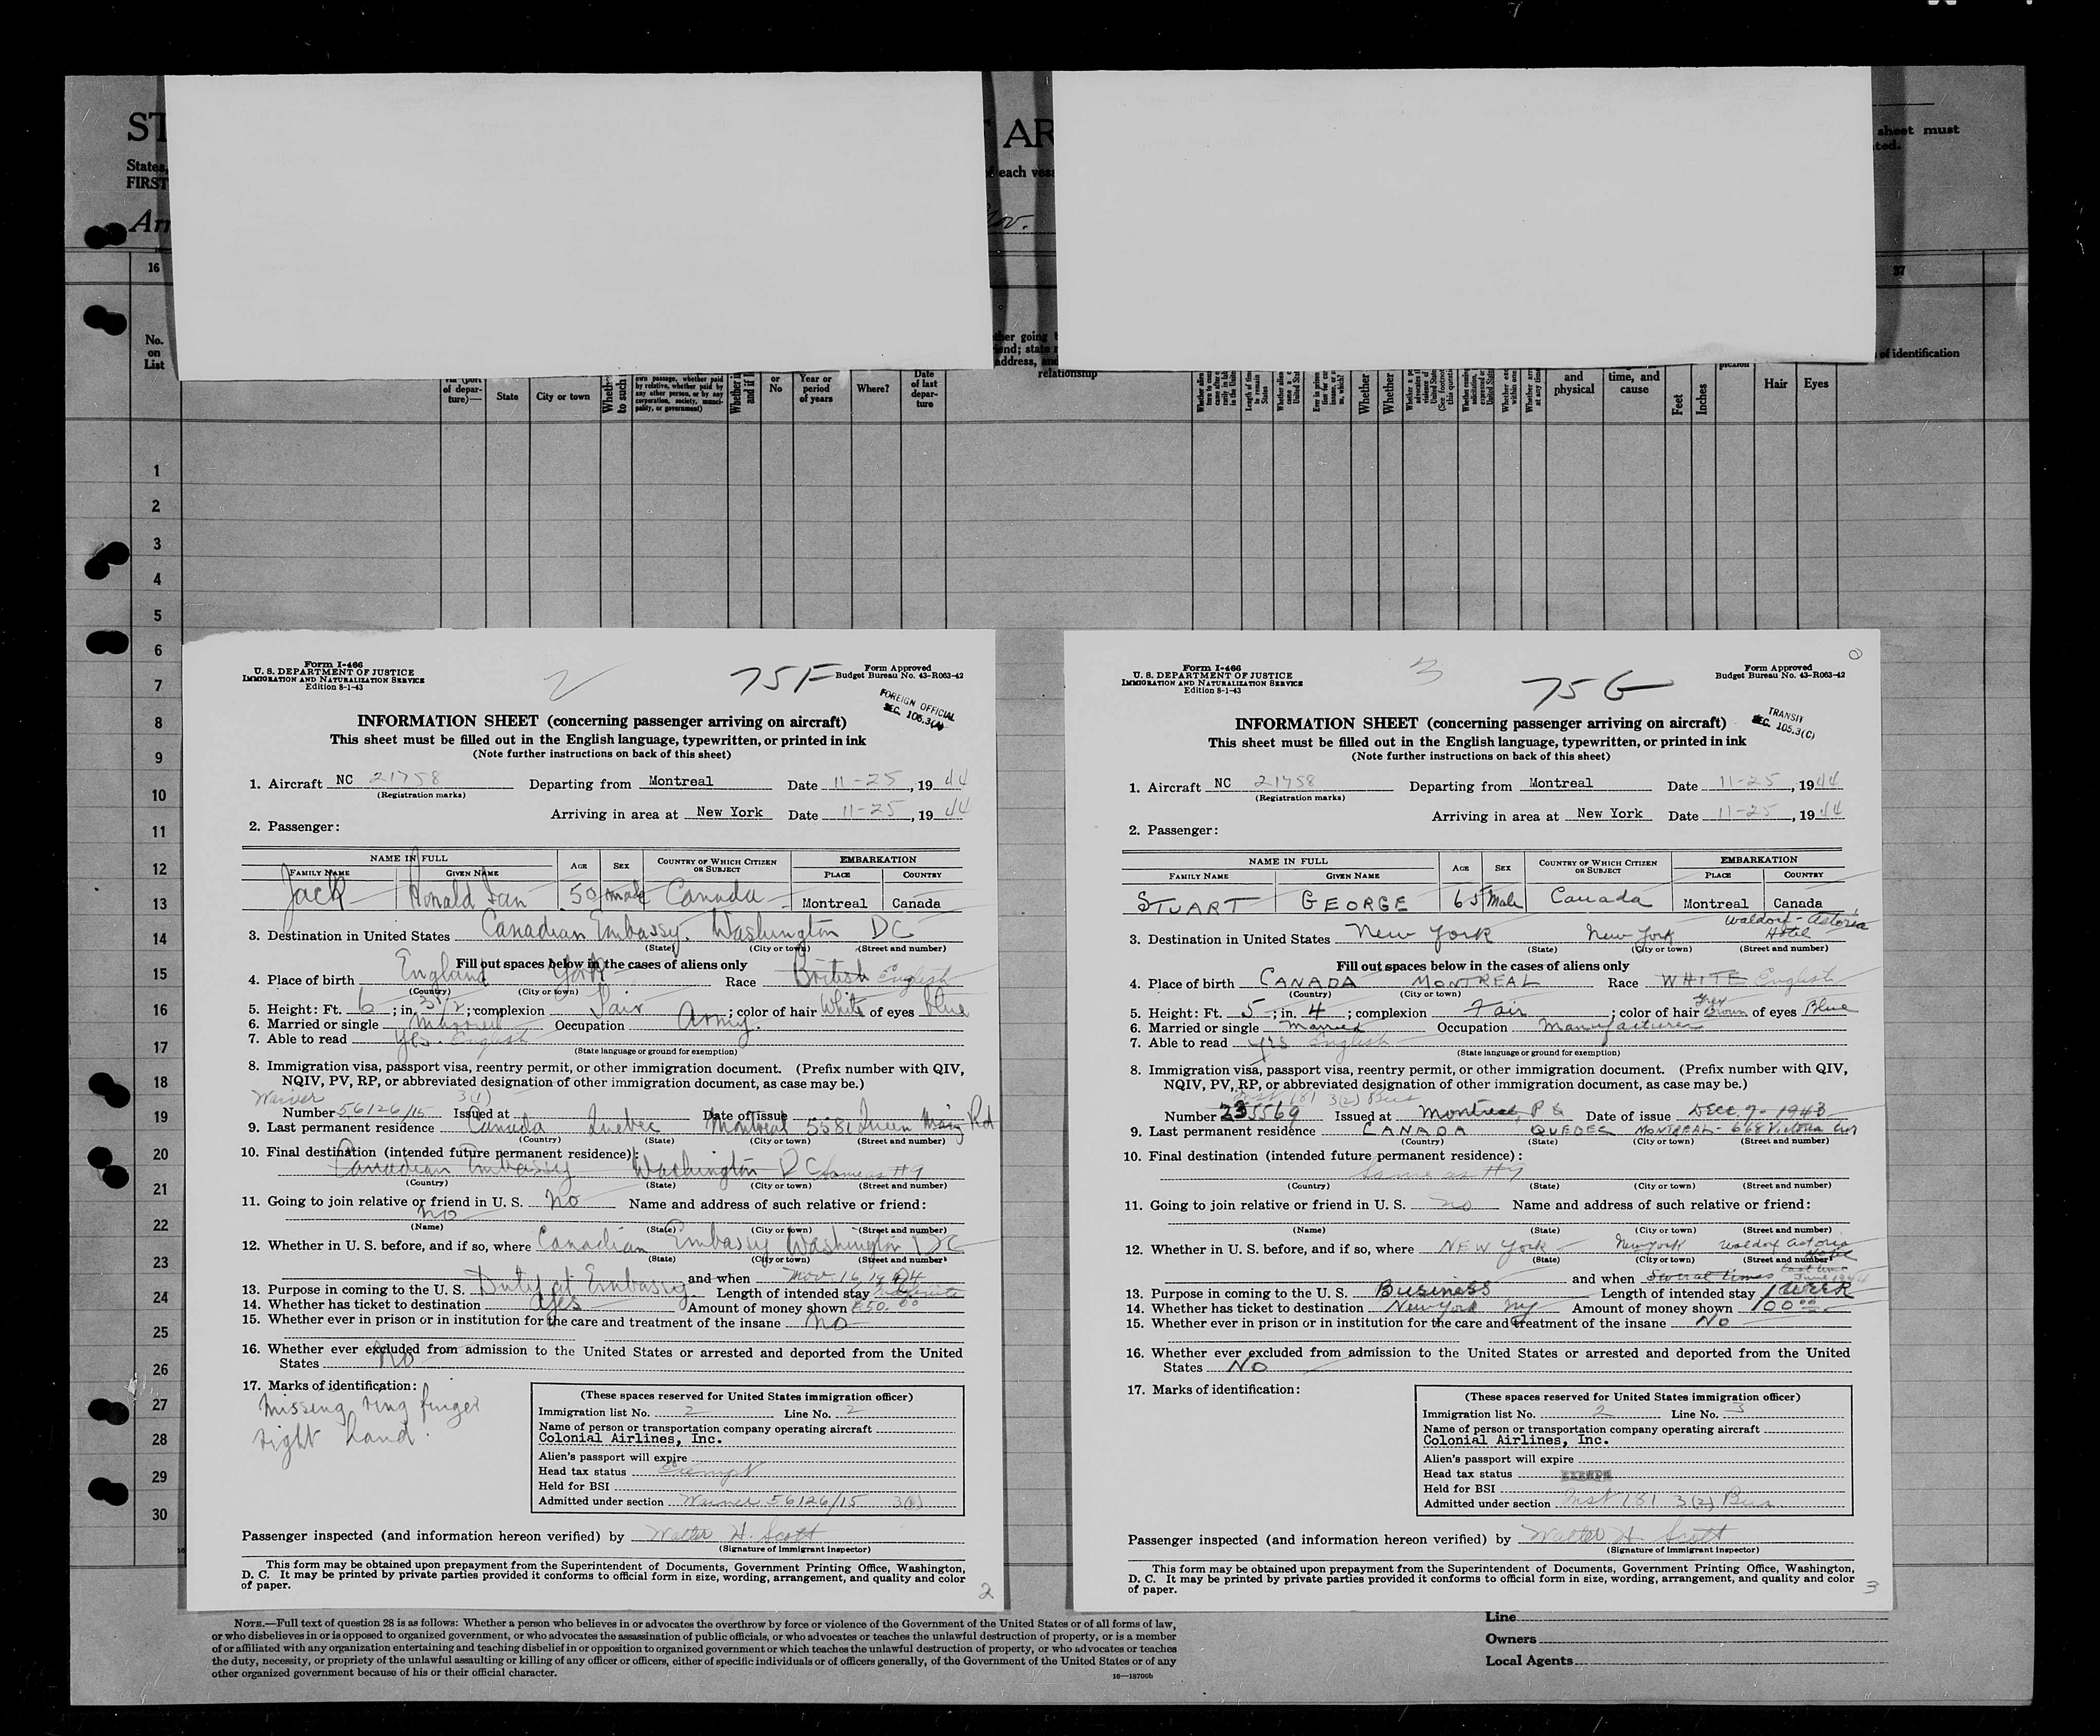 ST
AR
sheet must
ted.
States,
FIRST
each vess
Arr
16
37
No.
on
List
ther going t
end; state
address, and
relationship
of identification
of depar-
ture)—
State
City or town
own passage, whether paid
by relative, whether paid by
any other person, or by any
corporation, society, munici-
pality, or government)
or
No
Year or
period
of years
Where?
Date
of last
depar-
ture
and
physical
time, and
cause
Feet
Inches
Hair
Eyes
1
2
3
4
5
6
7
8
9
10
11
12
13
14
15
16
17
18
19
20
21
22
23
24
25
26
27
28
29
30
Form I-466
U. S. DEPARTMENT OF JUSTICE
IMMIGRATION AND NATURALIZATION SERVICE
Edition 8-1-43
2
75F
Form Approved
Budget Bureau No. 43-R063-42
FOREIGN OFFICIAL
SEC. 105.3(A)
INFORMATION SHEET (concerning passenger arriving on aircraft)
This sheet must be filled out in the English language, typewritten, or printed in ink
(Note further instructions on back of this sheet)
1. Aircraft NC 21758 Departing from Montreal Date 11-25, 1944
(Registration marks)
Arriving in area at New York Date 11-25, 1944
2. Passenger:
NAME IN FULL AGE SEX COUNTRY OF WHICH CITIZEN OR SUBJECT EMBARKATION
FAMILY NAME GIVEN NAME PLACE COUNTRY
Jack Ronald Ian 50 male Canada Montreal Canada
3. Destination in United States Canadian Embassy. Washington DC
(State) (City or town) (Street and number)
Fill out spaces below in the cases of aliens only
4. Place of birth England York Race British English
(Country) (City or town)
5. Height: Ft. 6; in. 3 1/2; complexion Fair; color of hair White of eyes blue
6. Married or single Married Occupation Army.
7. Able to read yes. English
(State language or ground for exemption)
8. Immigration visa, passport visa, reentry permit, or other immigration document. (Prefix number with QIV,
NQIV, PV, RP, or abbreviated designation of other immigration document, as case may be.)
Waiver 3(1)
Number 56126/15 Issued at Date of issue
9. Last permanent residence Canada Quebec Montreal 5581 Queen Mary Rd
(Country) (State) (City or town) (Street and number)
10. Final destination (intended future permanent residence):
Canadian Embassy Washington DC Same as #9
(Country) (State) (City or town) (Street and number)
11. Going to join relative or friend in U. S. no Name and address of such relative or friend:
no
(Name) (State) (City or town) (Street and number)
12. Whether in U. S. before, and if so, where Canadian Embassy Washington DC
(State) (City or town) (Street and number)
and when Nov. 16, 1944
13. Purpose in coming to the U. S. Duty at Embassy. Length of intended stay
14. Whether has ticket to destination yes Amount of money shown $50.00
15. Whether ever in prison or in institution for the care and treatment of the insane no
16. Whether ever excluded from admission to the United States or arrested and deported from the United
States no
17. Marks of identification:
Missing ring finger
right hand.
(These spaces reserved for United States immigration officer)
Immigration list No. 2 Line No. 2
Name of person or transportation company operating aircraft
Colonial Airlines, Inc.
Alien's passport will expire
Head tax status Exempt
Held for BSI
Admitted under section Waiver 56126/15 3(1)
Passenger inspected (and information hereon verified) by Walter H. Scott
(Signature of immigrant inspector)
This form may be obtained upon prepayment from the Superintendent of Documents, Government Printing Office, Washington,
D. C. It may be printed by private parties provided it conforms to official form in size, wording, arrangement, and quality and color
of paper.
2
Form I-466
U. S. DEPARTMENT OF JUSTICE
IMMIGRATION AND NATURALIZATION SERVICE
Edition 8-1-43
3
75G
Form Approved
Budget Bureau No. 43-R063-42
TRANSIT
SEC. 105.3(C)
INFORMATION SHEET (concerning passenger arriving on aircraft)
This sheet must be filled out in the English language, typewritten, or printed in ink
(Note further instructions on back of this sheet)
1. Aircraft NC 21758 Departing from Montreal Date 11-25, 1944
(Registration marks)
Arriving in area at New York Date 11-25, 1944
2. Passenger:
NAME IN FULL AGE SEX COUNTRY OF WHICH CITIZEN OR SUBJECT EMBARKATION
FAMILY NAME GIVEN NAME PLACE COUNTRY
STUART GEORGE 65 Male Canada Montreal Canada
3. Destination in United States New York New York Waldorf-Astoria Hotel
(State) (City or town) (Street and number)
Fill out spaces below in the cases of aliens only
4. Place of birth CANADA MONTREAL Race WHITE English
(Country) (City or town)
5. Height: Ft. 5; in. 4; complexion Fair; color of hair Grey Brown of eyes Blue
6. Married or single Married Occupation Manufacturer
7. Able to read yes English
(State language or ground for exemption)
8. Immigration visa, passport visa, reentry permit, or other immigration document. (Prefix number with QIV,
NQIV, PV, RP, or abbreviated designation of other immigration document, as case may be.)
Inst 181 3(2) Bus
Number 235569 Issued at Montreal, P Q Date of issue DEC. 9- 1943
9. Last permanent residence CANADA QUEBEC MONTREAL - 668 Victoria Ave
(Country) (State) (City or town) (Street and number)
10. Final destination (intended future permanent residence):
Same as #9
(Country) (State) (City or town) (Street and number)
11. Going to join relative or friend in U. S. no Name and address of such relative or friend:
(Name) (State) (City or town) (Street and number)
12. Whether in U. S. before, and if so, where NEW York New York Waldorf Astoria Hotel
(State) (City or town) (Street and number)
and when Several times Last time June 1944
13. Purpose in coming to the U. S. Business Length of intended stay 1 WEEK
14. Whether has ticket to destination New York NY Amount of money shown 100.00
15. Whether ever in prison or in institution for the care and treatment of the insane No
16. Whether ever excluded from admission to the United States or arrested and deported from the United
States No
17. Marks of identification:
(These spaces reserved for United States immigration officer)
Immigration list No. 2 Line No. 3
Name of person or transportation company operating aircraft
Colonial Airlines, Inc.
Alien's passport will expire
Head tax status EXEMPT
Held for BSI
Admitted under section Inst 181 3(2) Bus
Passenger inspected (and information hereon verified) by Walter H. Scott
(Signature of immigrant inspector)
This form may be obtained upon prepayment from the Superintendent of Documents, Government Printing Office, Washington,
D. C. It may be printed by private parties provided it conforms to official form in size, wording, arrangement, and quality and color
of paper.
3
NOTE.—Full text of question 28 is as follows: Whether a person who believes in or advocates the overthrow by force or violence of the Government of the United States or of all forms of law,
or who disbelieves in or is opposed to organized government, or who advocates the assassination of public officials, or who advocates or teaches the unlawful destruction of property, or is a member
of or affiliated with any organization entertaining and teaching disbelief in or opposition to organized government or which teaches the unlawful destruction of property, or who advocates or teaches
the duty, necessity, or propriety of the unlawful assaulting or killing of any officer or officers, either of specific individuals or of officers generally, of the Government of the United States or of any
other organized government because of his or their official character.
16—18700b
Line
Owners
Local Agents